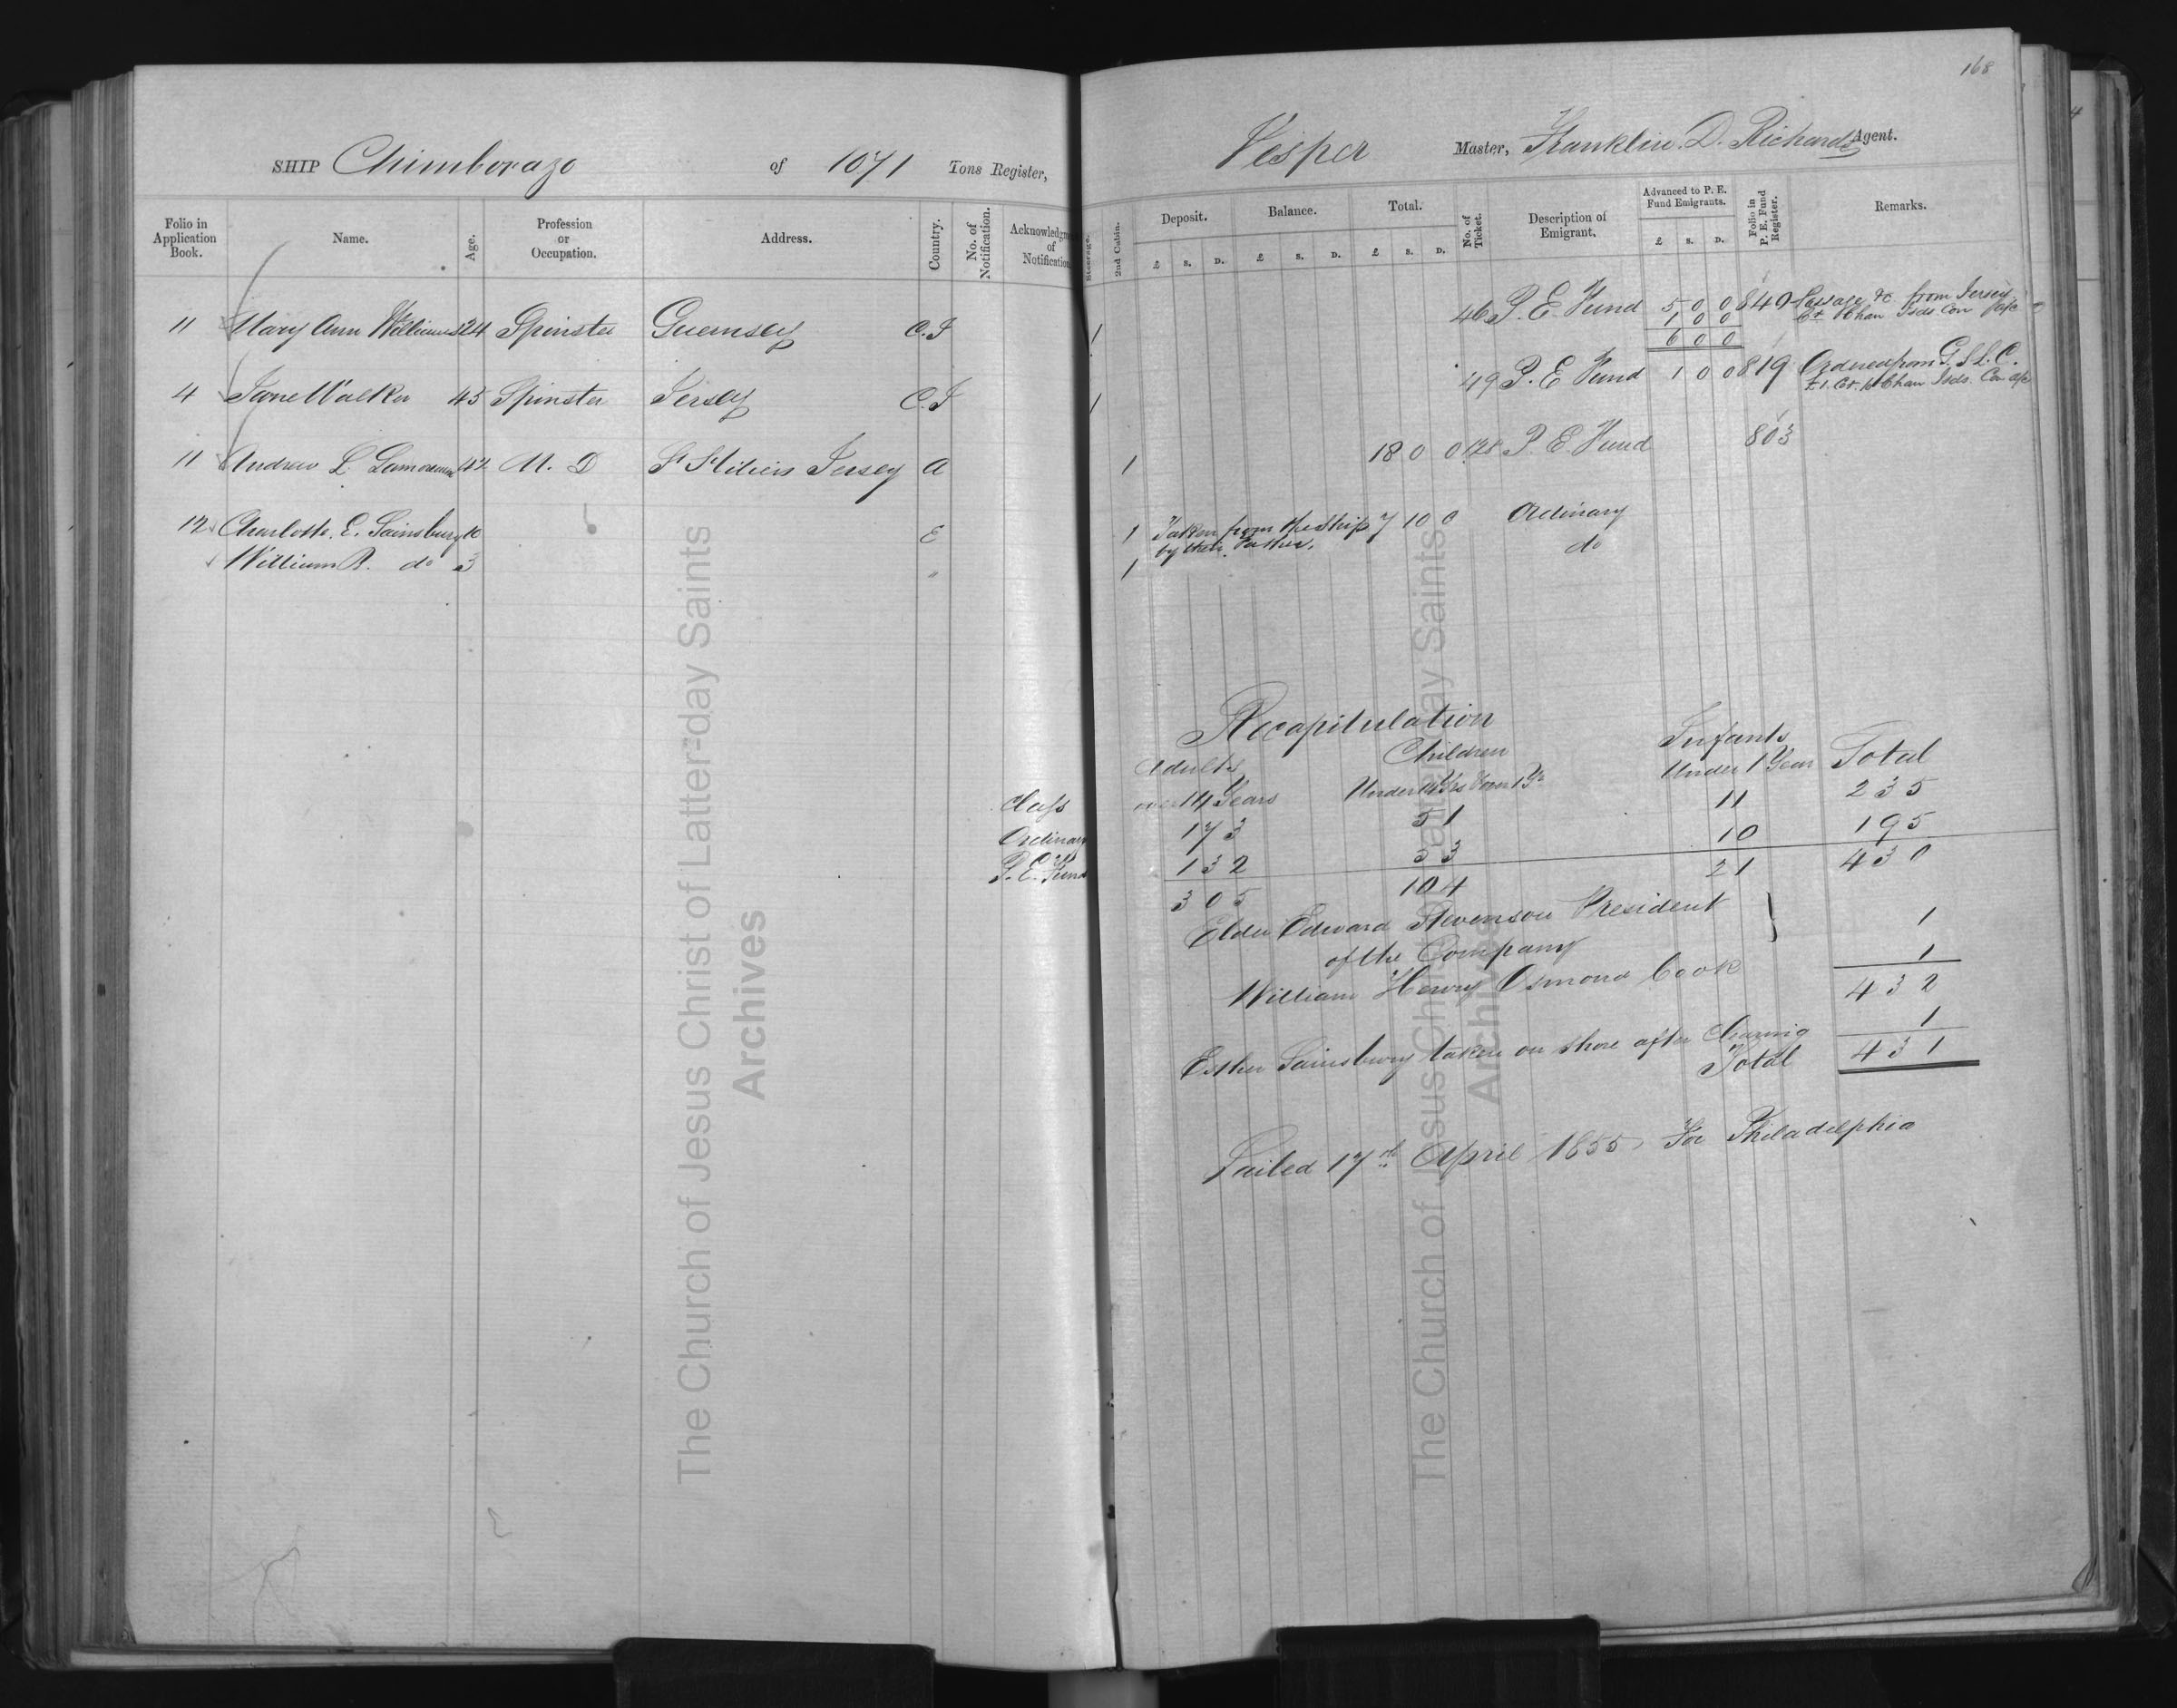 168
SHIP Chimborazo of 1071 Tons Register, Vesper Master, Franklin. D. Richards Agent.
Folio in Application Book. Name. Age. Profession or Occupation. Address. Country. No. of Notification. Acknowledgm of Notification Steerage. 2nd Cabin. Deposit. £ s. D. Balance. £ s. D. Total. £ s. D. No. of Ticket. Description of Emigrant. Advanced to P. E. Fund Emigrants. £ s. D. Folio in P. E. Fund Register. Remarks.
11 Mary Ann Williams 24 Spinster Guernsey C.I 1 46 P. E. Fund 5 0 0 840 Passage &c from Jersey
1 0 0 Chan Isds Con
6 0 0
4 Jane Walker 45 Spinster Jersey C.I 1 49 P. E Fund 1 0 0 819 Ordered from G. S. L. C.
Chan Isds. Con
11 Andrew L. 42 M. D St Jersey A 1 18 0 0 128 P. E. Fund 803
12 Charlotte. E. Sainsbury 10 E 1 Taken from the Ship 7 10 0 Ordinary
by their Father.
William R. do 3 " 1 do
Recapitulation
Class Adults over 14 Years Children Under 14 Yrs 1 Yr Infants Under 1 Year Total
Ordinary 173 51 11 235
P. E. Fund 132 53 10 195
305 104 21 430
Elder Edward Stevenson President
of the Company 1
William Henry Osmond Cook 1
432
Esther Sainsbury taken on shore after Clearing 1
Total 431
Sailed 17th April 1855 For Philadelphia
The Church of Jesus Christ of Latter-day Saints
Archives
The Church of Jesus Christ of Latter-day Saints
Archives